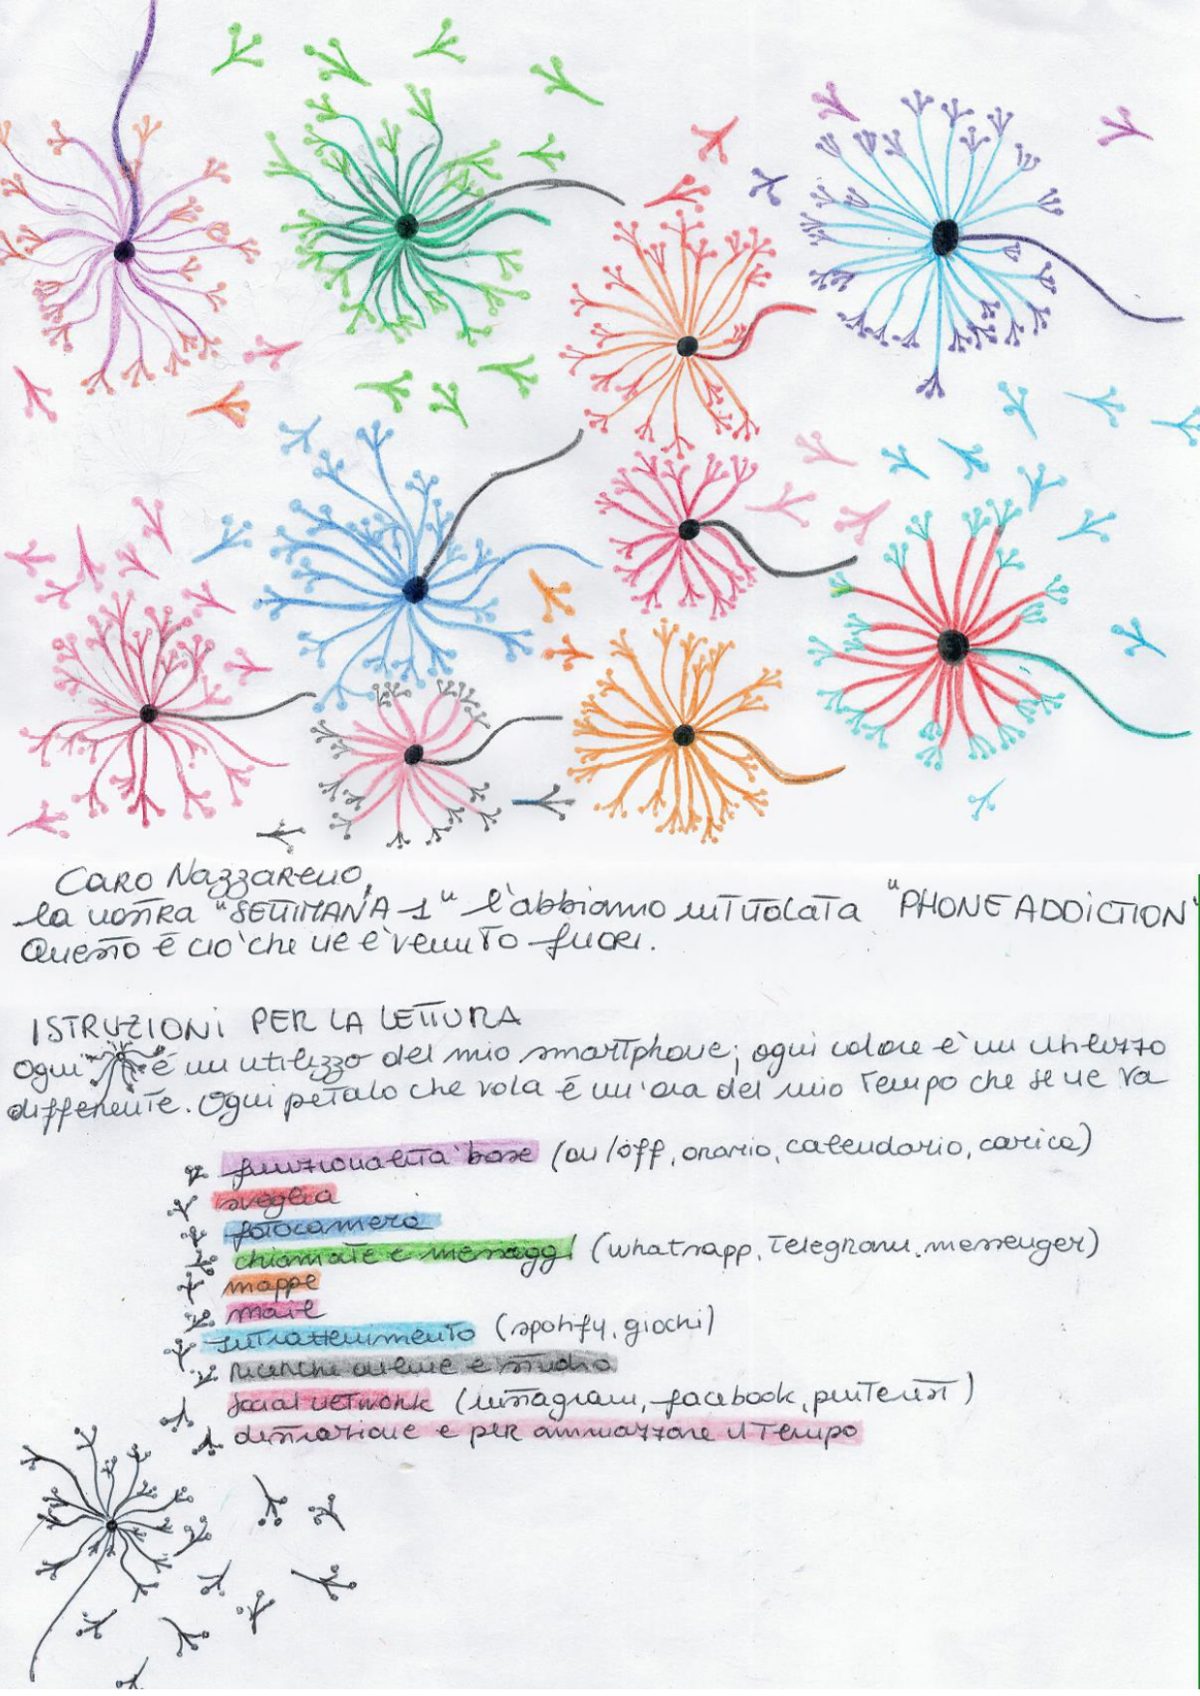 Caro Nazzareno,
la nostra "SETTIMANA 1" l'abbiamo intitolata "PHONE ADDICTION"
Questo è ciò che ne è venuto fuori.
ISTRUZIONI PER LA LETTURA
Ogni è un utilizzo del mio smartphone; ogni colore è un utilizzo
differente. Ogni petalo che vola è un'ora del mio tempo che se ne va
funzionalità base (on/off, orario, calendario, carica)
sveglia
fotocamera
chiamate e messaggi (whatsapp, telegram, messenger)
mappe
mail
intrattenimento (spotify, giochi)
ricerche online e studio
social network (instagram, facebook, pinterest)
distrazione e per ammazzare il tempo